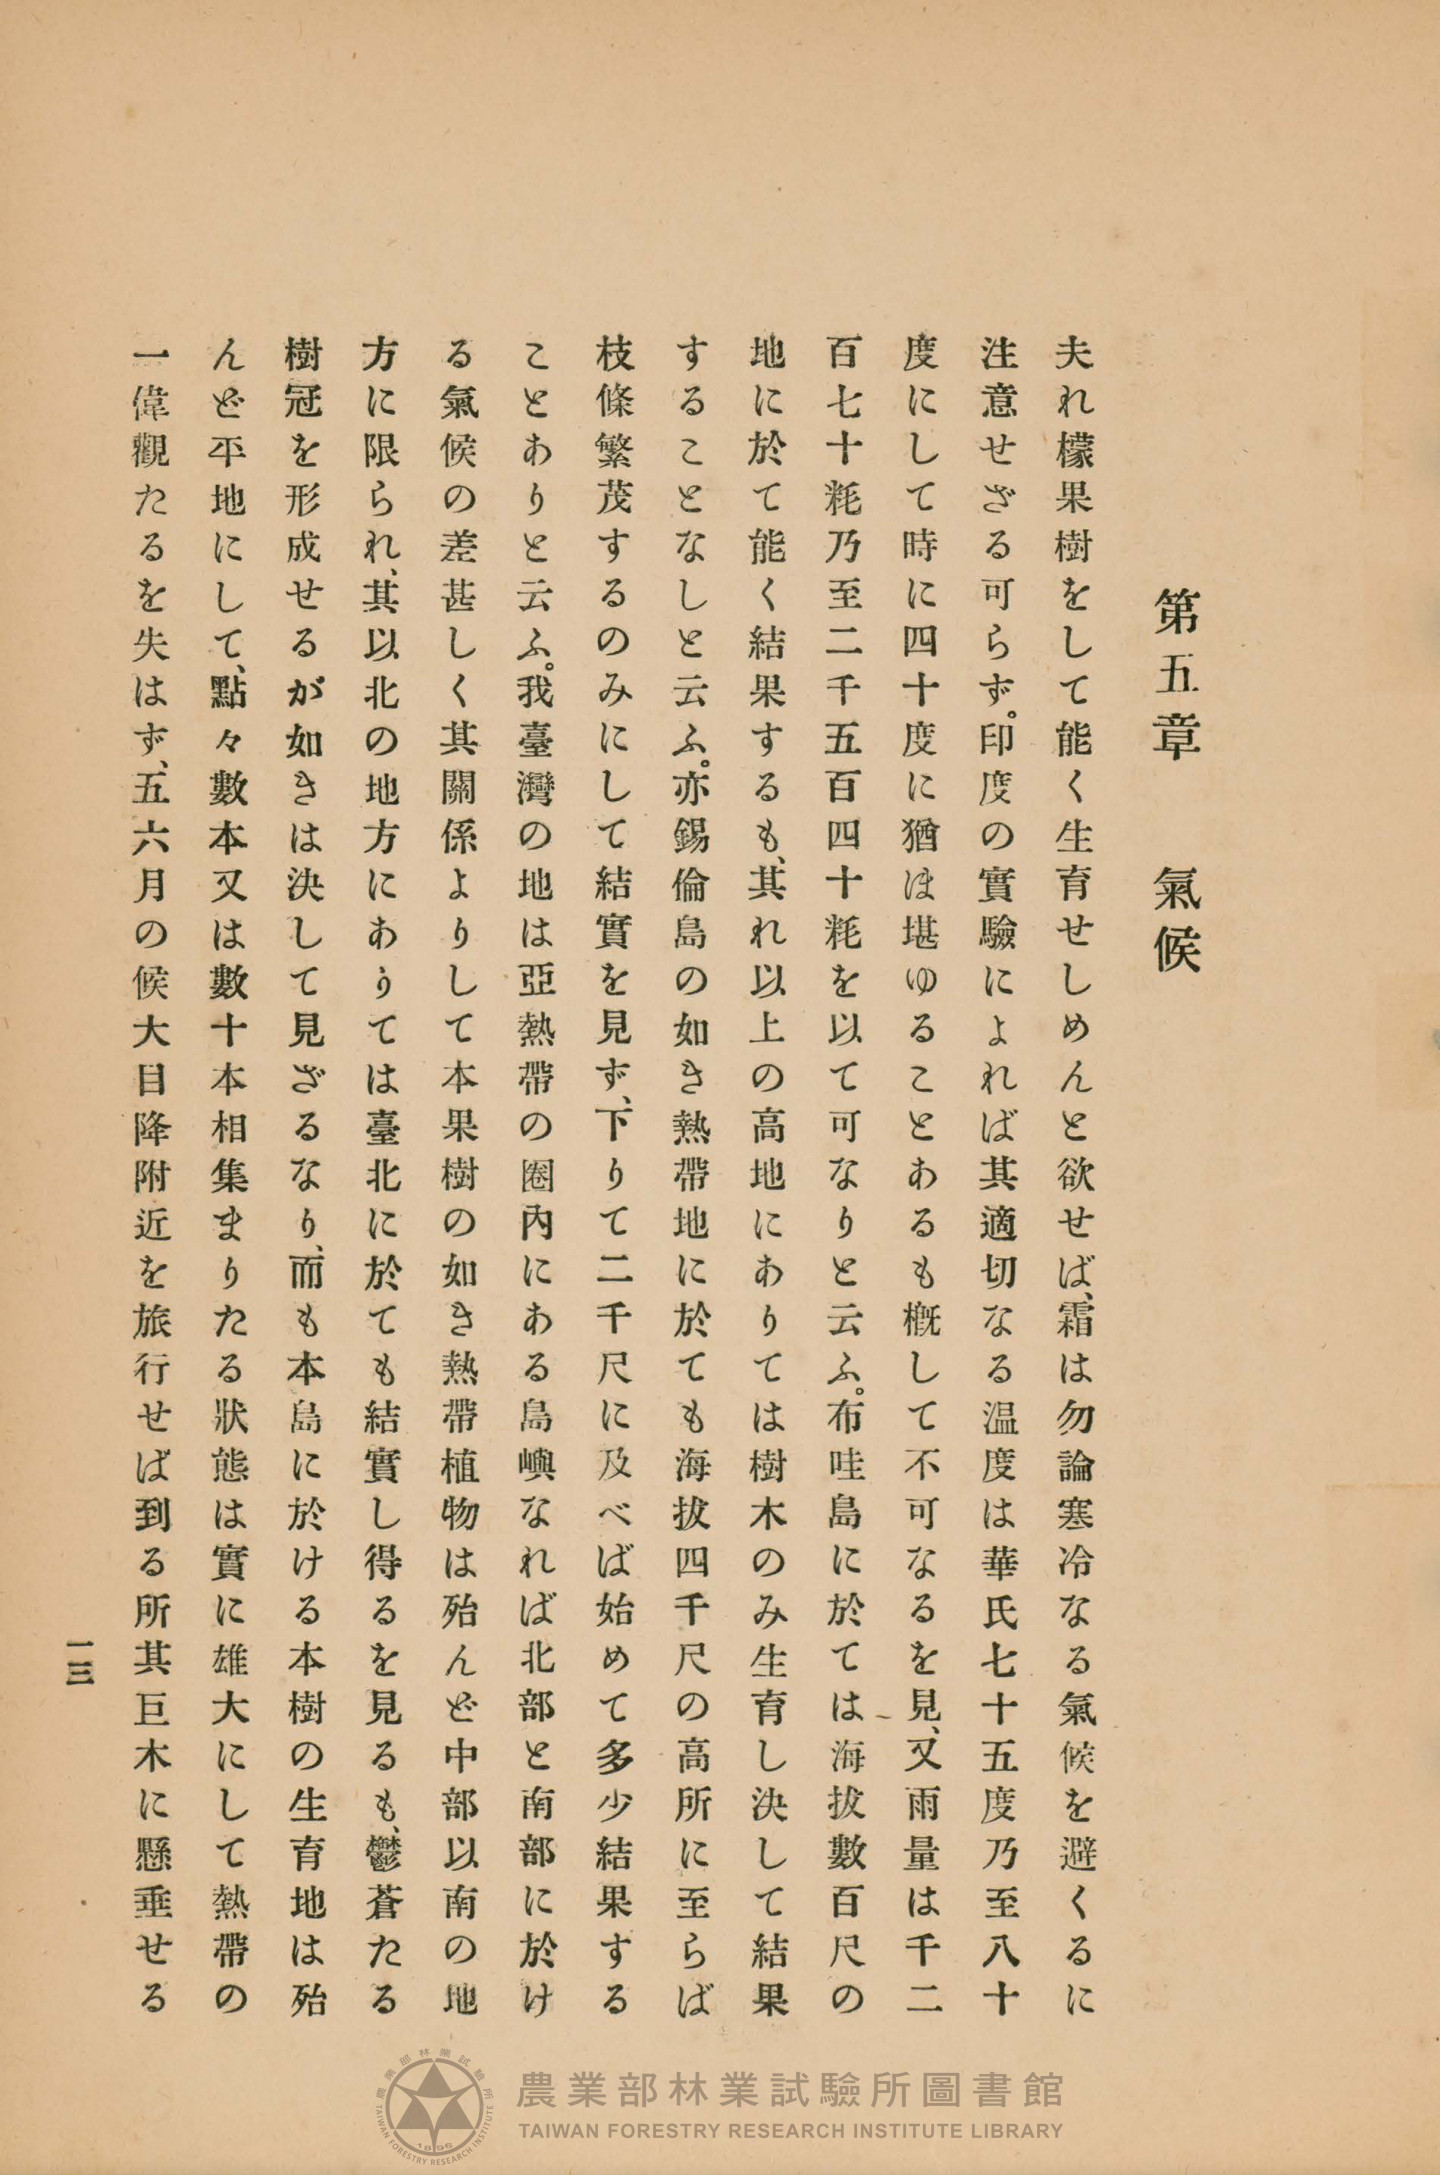 第五章　氣候
夫れ檬果樹をして能く生育せしめんと欲せば、霜は勿論寒冷なる氣候を避くるに
注意せざる可らず。印度の實驗によれば其適切なる温度は華氏七十五度乃至八十
度にして時に四十度に猶ほ堪ゆることあるも概して不可なるを見、又雨量は千二
百七十粍乃至二千五百四十粍を以て可なりと云ふ。布哇島に於ては海拔數百尺の
地に於て能く結果するも、其れ以上の高地にありては樹木のみ生育し決して結果
することなしと云ふ。亦錫倫島の如き熱帶地に於ても海拔四千尺の高所に至らば
枝條繁茂するのみにして結實を見ず、下りて二千尺に及べば始めて多少結果する
ことありと云ふ。我臺灣の地は亞熱帶の圈內にある島嶼なれば北部と南部に於け
る氣候の差甚しく其關係よりして本果樹の如き熱帶植物は殆んど中部以南の地
方に限られ、其以北の地方にありては臺北に於ても結實し得るを見るも、鬱蒼たる
樹冠を形成せるが如きは決して見ざるなり、而も本島に於ける本樹の生育地は殆
んど平地にして、點々數本又は數十本相集まりたる狀態は實に雄大にして熱帶の
一偉觀たるを失はず、五六月の候大目降附近を旅行せば到る所其巨木に懸垂せる
一三
農業部林業試驗所圖書館
TAIWAN FORESTRY RESEARCH INSTITUTE LIBRARY
農業部林業試驗所
TAIWAN FORESTRY RESEARCH INSTITUTE
1896